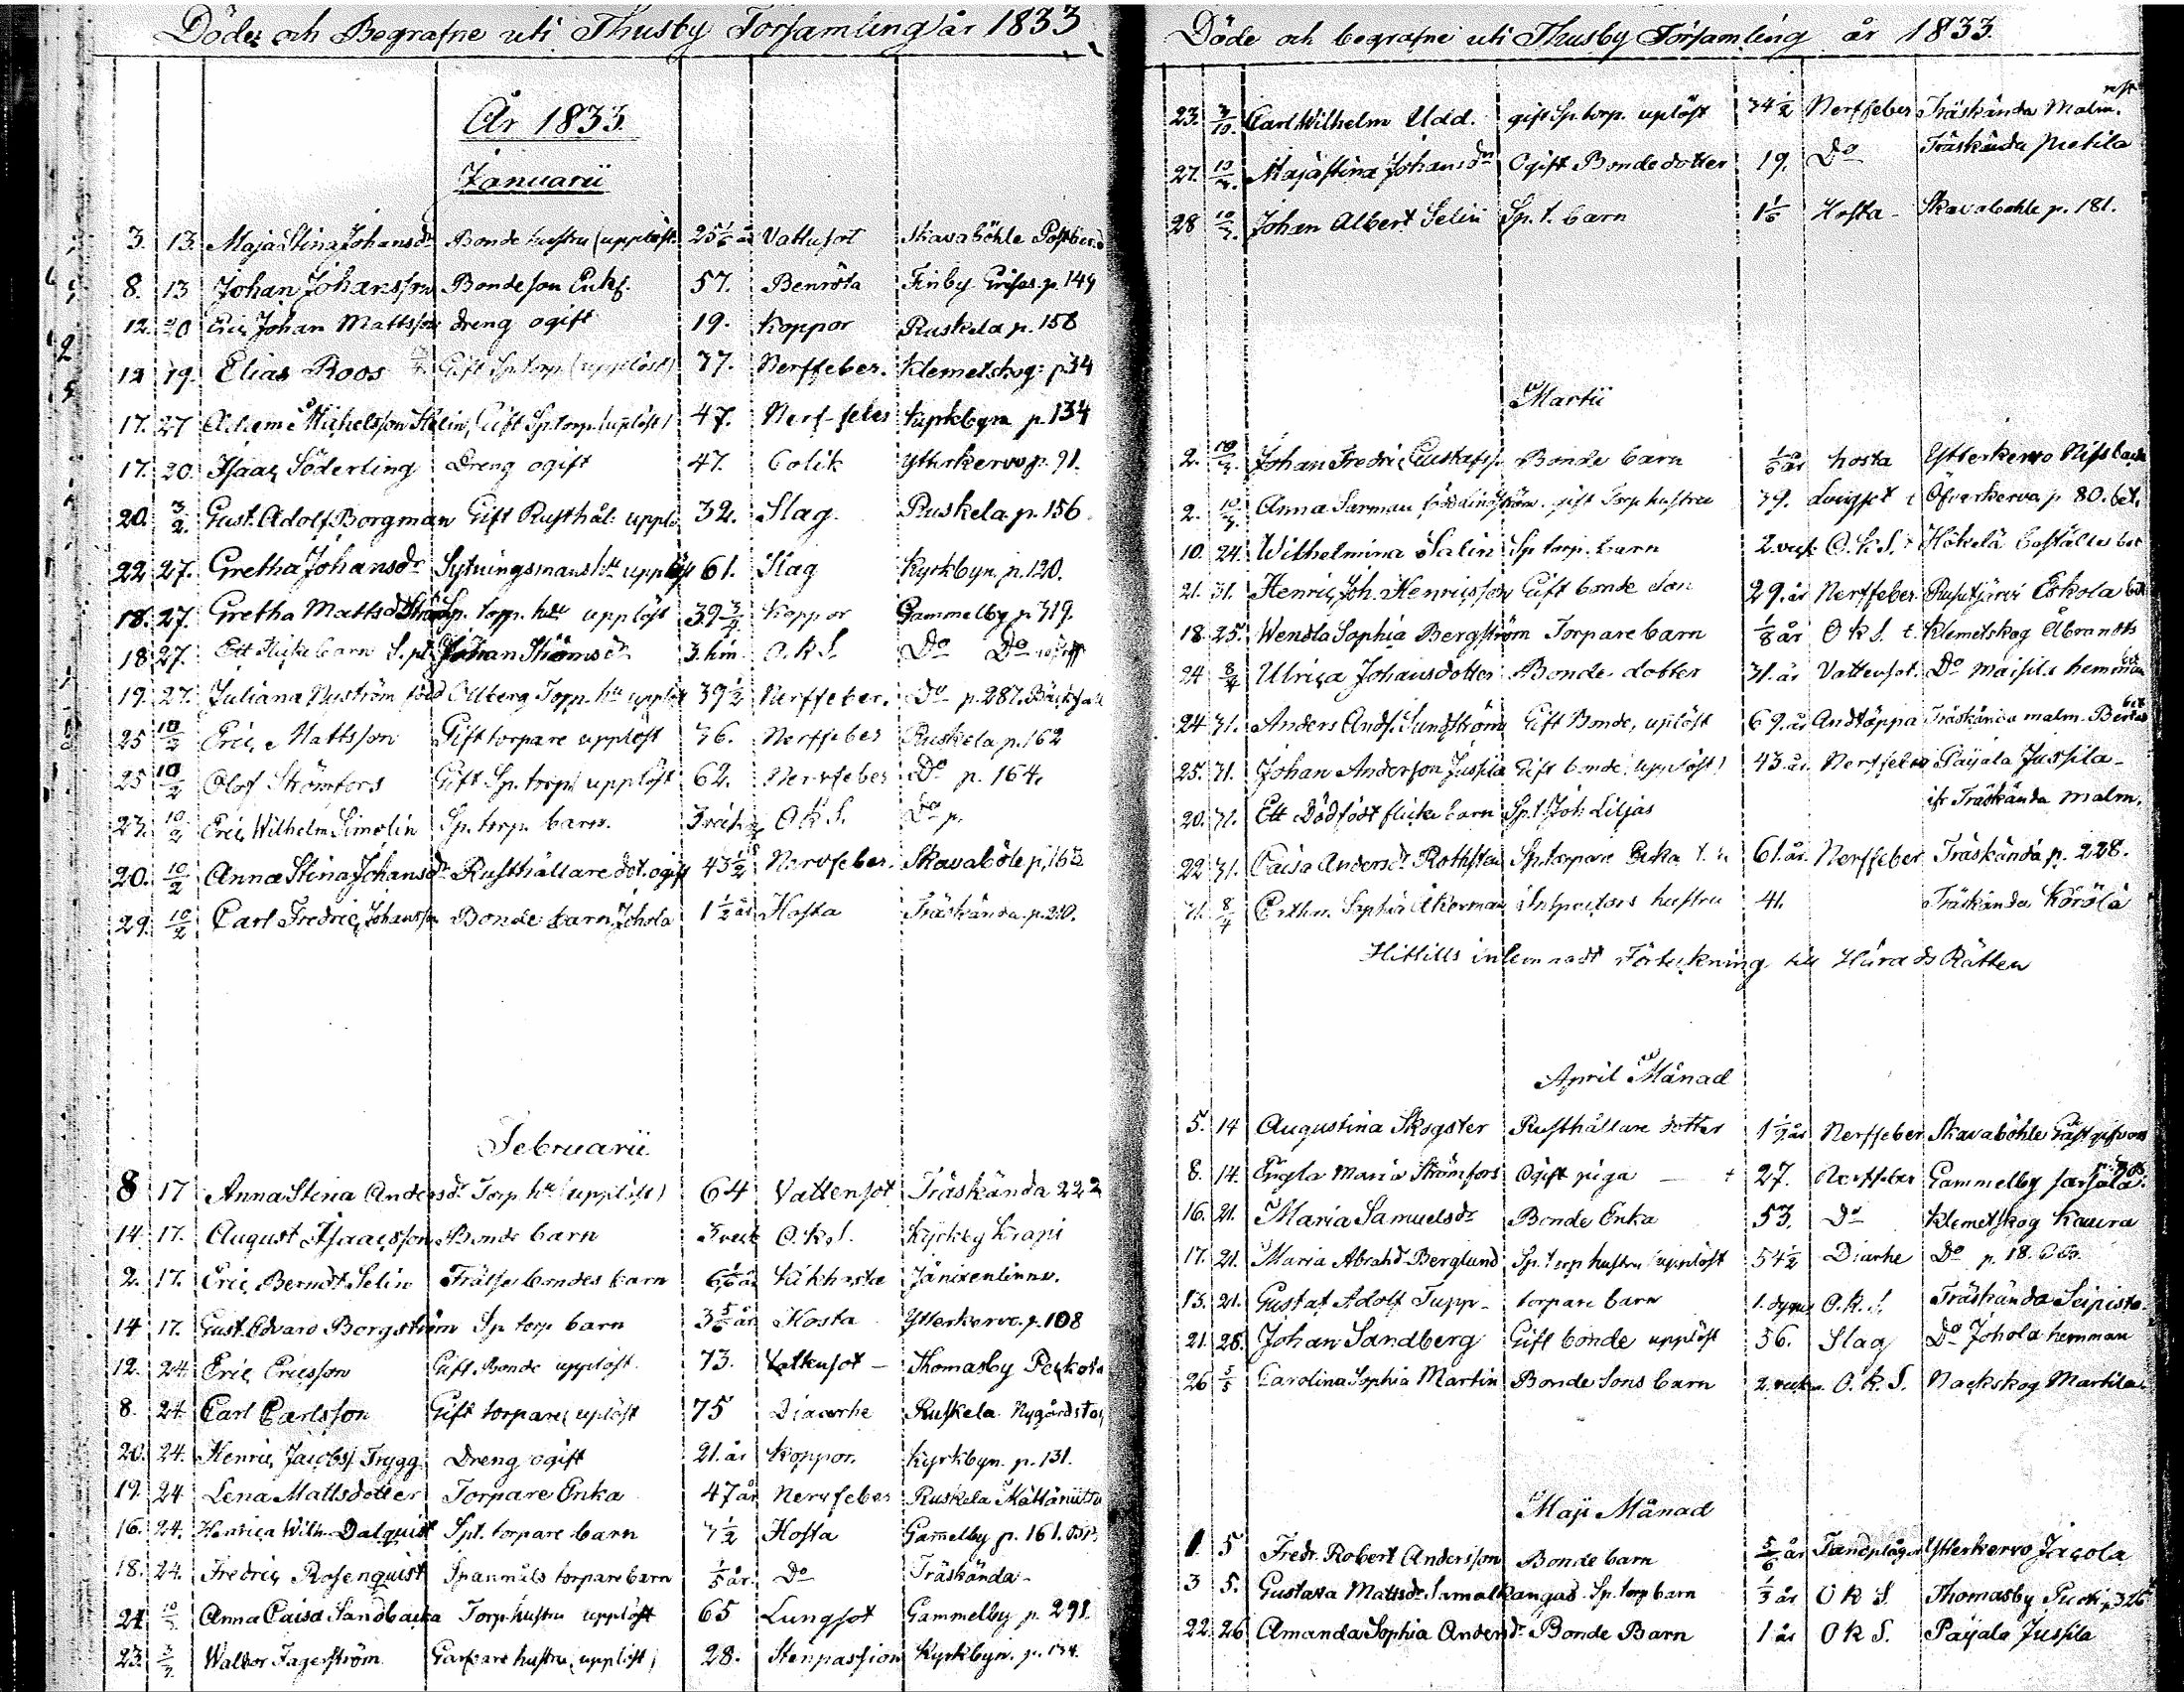 Döde och Begrafne uti Thusby Församling år 1833
År 1833.
Januarii
3. 13. Maja Stina Johansdr Bonde hustru (upplöst 25 1/6 år Vattusot Skavaböhle
8. 13 Johan Johansson Bondeson Enkf. 57. Benröta Finby p. 149
12. 20 Eric Johan Mattsson dreng ogift 19. Koppor Ruskela p. 158
12 19. Elias Roos Gift Sp. torp (upplöst) 37. Nerffeber. Klemetskog p 34
17. 27 Michelsson Gift Sp. torp (uplöst) 47. Nerf-feber Kyrkbyn p. 134
17. 20. Isaac Söderling Dreng ogift 47. Colik Ytterkervo p. 91.
20. 3/2. Gust. Adolf Borgman Gift Rusthål: upplö 32. Slag. Ruskela p. 156.
22 27. Gretha Johansdr Sytningsmans hu upplöst 61. Slag Kyrkbyn p. 120.
18. 27. Gretha Mattsd Sp. torp. hu upplöst 39 3/4 Koppor Gammelby p 319.
18 27. Ett flicke barn Johan Ströms dr 3. tim. O.k.S. Do Do
19. 27. Juliana Nyström född Ollberg Torp. hu upplöst 39 1/2 Nerffeber. Do p. 287.
25 10/2 Eric Mattsson Gift torpare upplöst 36. Nerffeber Ruskela p. 162
25 10/2 Olof Strömfors Gift Sp. torp upplöst 62. Nervfeber Do p. 164.
23. 10/2 Eric Wilhelm Simolin Sp. torp. barn. 3 veck. O.k.S. Do p.
20. 10/2 Anna Stina Johansdr Rusthållare dot. ogift 43 1/2 Nervfeber. Skavaböle p. 163
29. 10/2 Carl Fredric Johansson Bonde barn Johola 1 1/2 år Hosta Träskända p. 210.
Februarii
8 17 Anna Stina Andersdr Torp. hu (upplöst) 64 Vattensot Träskända 222
14. 17. August Isaacsson Bonde barn 3 veck O.k.S. Kyrkby Krapi
2. 17. Eric Berndt Selin Frälsebondes barn Kikhosta
14 17. Gust. Edvard Borgström Sp torp barn 3 5/6 år Hosta Ytterkervo p. 108
12. 24 Eric Ericsson Gift Bonde upplöst 73. Vattensot Thomasby
8. 24 Carl Carlsson Gift torpare uplöst 75 Diarrhe Ruskela Nygårds
20. 24. Henric Jacobs. Trygg. Dreng ogift 21. år Koppor. Kyrkbyn. p. 131.
19. 24 Lena Mattsdotter Torpare Enka 47 år Nervfeber Ruskela
16. 24. Henrica Wilh. Dalquist Spt. torpare barn 7 1/2 Hosta Gammelby p. 161.
18. 24. Fredric Rosenquist Spanmåls torpare barn 1/5 år. Do Träskända
24 10/3 Anna Caisa Sandbacka Torp. hustru upplöst 65 Lungsot Gammelby p. 291.
23. 3/3 Waldbor Jagerström Garfvare hustru (upplöst) 28. Stenpassion Kyrkbyn. p. 134.
Döde och begrafne uti Thusby Församling år 1833.
23. 3/10. Carl Wilhelm Udd. gift Sp. torp. uplöst 34 1/2 Nerffeber Träskända Malm.
27. 10/3. Maja Stina Johansdr Ogift Bondedotter 19. Do Träskända
28 10/3. Johan Albert Selin Sp. t. barn 1 1/6 Hosta Skavabohle p. 181.
Martii
2. 10/3. Johan Fredric Gustafss. Bonde barn 1/6 år hosta Ytterkervo
2. 10/3. Anna Sarman född Lindström gift Torp. hustru 39. Lungsot Öfverkervo p 80.
10. 24. Wilhelmina Salin Sp. torp. barn 2. veck O.k.S. Hökelä
21. 31. Henric Joh. Henricsson Gift bonde Son 29. år Nerffeber. Rusutjärvi Eskola
18. 25. Wendla Sophia Bergström Torpare barn 1/8 år O k S. Klemetskog Åbrandts
24 8/4 Ulrica Johansdotter Bonde dotter 31. år Vattensot. Do hemman
24 31. Anders Ands. Sundström Gift Bonde, uplöst 69. år Andtäppa Träskända malm.
25. 31. Johan Anderson Jussila Gift bonde (upplöst) 43. år. Nerffeber Paijala Jussila
20. 31. Ett Dödfödt flicke barn Sp. t. Joh Liljas ifr Träskända malm.
22 31. Caisa Andersdr Rothsten Sp. torpare Enka 61. år. Nerffeber Träskända p. 228.
31. 8/4 Sophia Åkerman Inspectors hustru 41. Träskända Körölä
Hittills inlemnadt Förteckning till Härads Rätten
April Månad
5. 14 Augustina Skogster Rusthållare dotter Nerffeber Skavaböhle
8. 14. Engla Maria Strömfors Ogift piga 27. Nerffeber Gammelby
16. 21. Maria Samuelsdr Bonde Enka 53. Do Klemetskog Kaura
17. 21. Maria Abrahd. Berglund Sp. torp hustru upplöst 54 1/2 Diarhe Do p. 18.
13. 21. Gustaf Adolf Tupp. torpare barn 1. dygn O.k.S. Träskända
21. 28. Johan Sandberg Gift bonde upplöst 56. Slag Do Johola hemman
26 5/5 Carolina Sophia Martin Bonde Sons barn 2. veck. O.k.S. Nackskog Martila
Maji Månad
1. 5 Fredr. Robert Andersson Bonde barn 5/6 år Tandplågor Ytterkervo Jacola
3 5. Gustava Mattsdr Samalkangas Sp. torp barn O k S. Thomasby
22. 26 Amanda Sophia Andersdr Bonde Barn 1 år O k S. Paijala Jussila